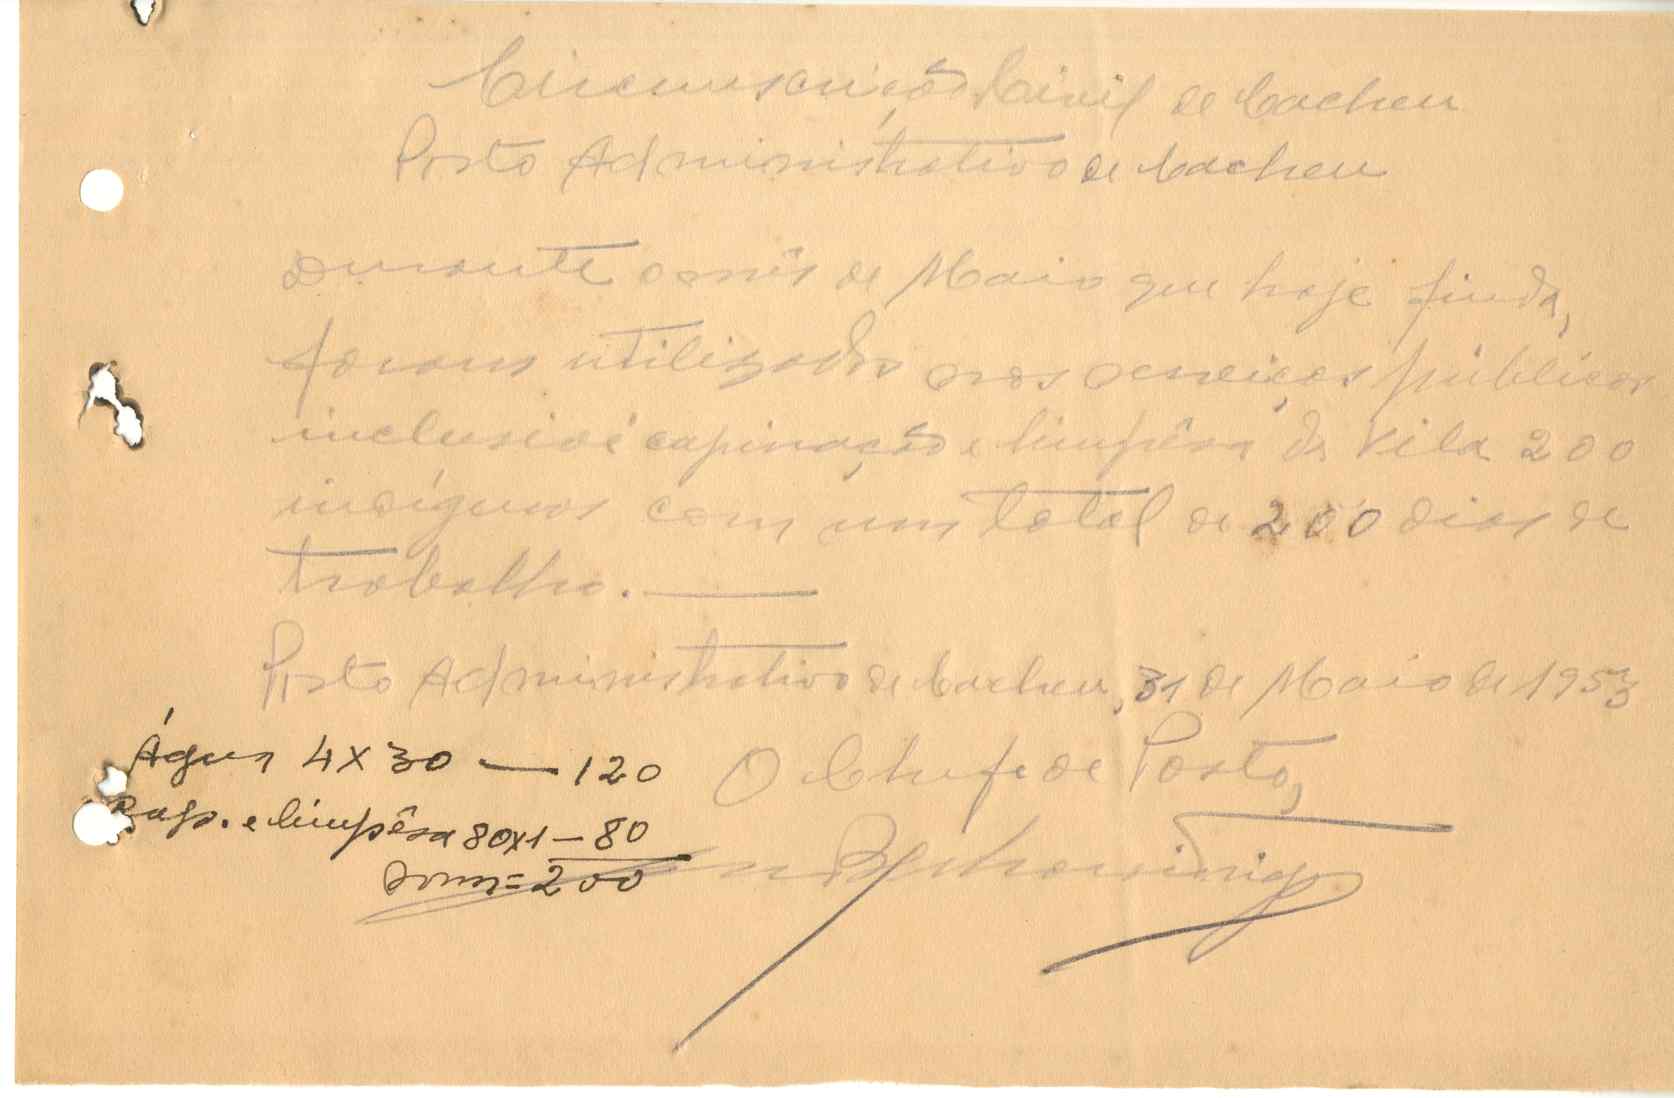 Circunscrição Civil de Cacheu
Posto Administrativo de Cacheu
Durante o mês de Maio que hoje finda,
foram utilizados nos serviços públicos
inclusivé capinação e limpêsa da Vila 200
indígenas com um total de 200 dias de
trabalho.
Posto Administrativo de Cacheu, 31 de Maio de 1953
O Chefe de Posto,
Água 4 X 30 — 120
Cap. e limpêsa 80x1 — 80
Soma = 200